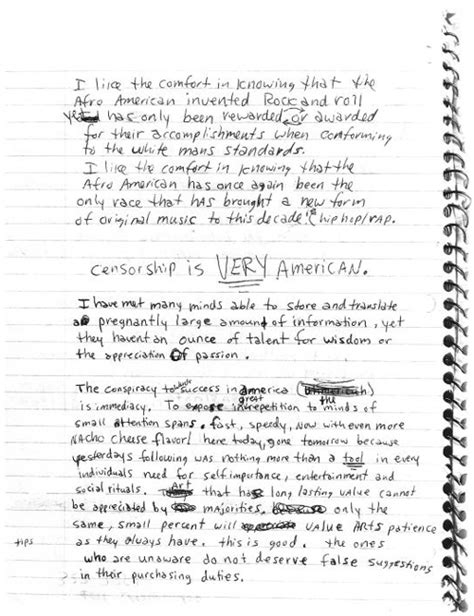 I like the comfort in knowing that the
Afro American invented Rock and roll
yet has only been rewarded or awarded
for their accomplishments when conforming
to the white mans standards.
I like the comfort in knowing that the
Afro American has once again been the
only race that HAS brought a new form
of original music to this decade! (hip hop/rap.
censorship is VERY American.
I have met many minds able to store and translate
a pregnantly large amount of information, yet
they havent an ounce of talent for wisdom or
the appreciation of passion.
The conspiracy to success in america
is immediacy. To expose in great repetition to the minds of
small attention spans. fast, speedy, Now with even more
NAcho cheese flavor! here today, gone tomorrow because
yesterdays following was nothing more than a tool in every
individuals need for self importance, entertainment and
social rituals. Art that has long lasting value cannot
be appreciated by majorities. only the
same, small percent will value ARTS patience
as they always have. this is good. the ones
tips
who are unaware do not deserve false suggestions
in their purchasing duties.